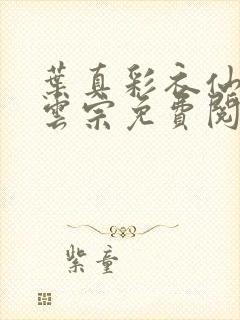 葉真彩衣仙
雲宗免費閱
紫童